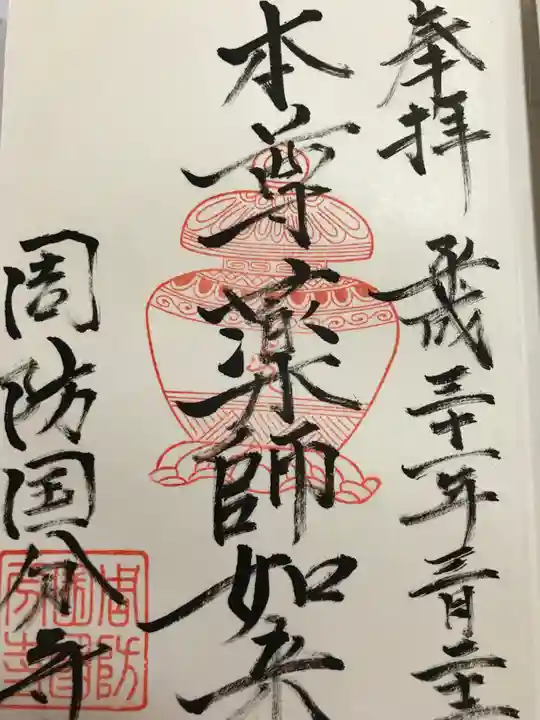 奉拝 平成三十一年三月二十
本尊薬師如来
周防国分寺
周防国分寺